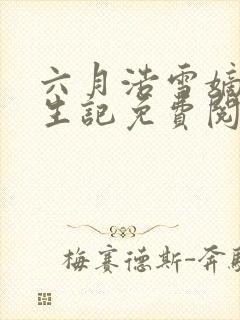 六月浩雪嫡
生記免費閱
梅赛德斯-奔馳